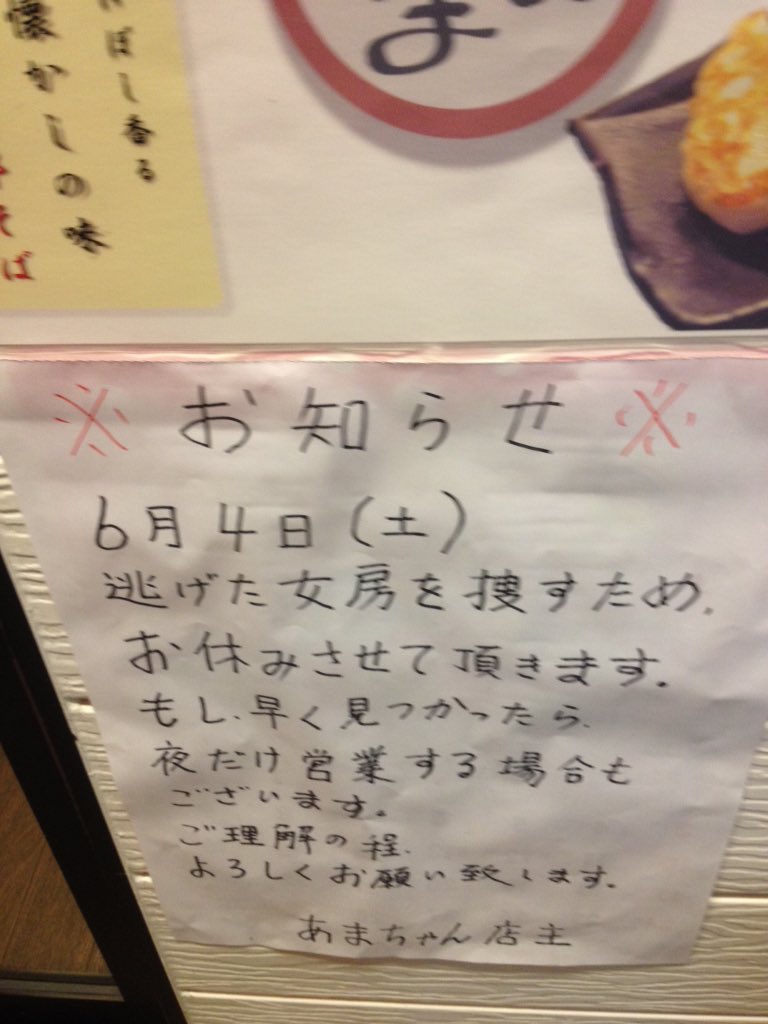 ばし香る
懐かしの味
そば
ま
※お知らせ※
6月4日(土)
逃げた女房を捜すため、
お休みさせて頂きます。
もし、早く見つかったら、
夜だけ営業する場合も
ございます。
ご理解の程、
よろしくお願い致します。
あまちゃん店主